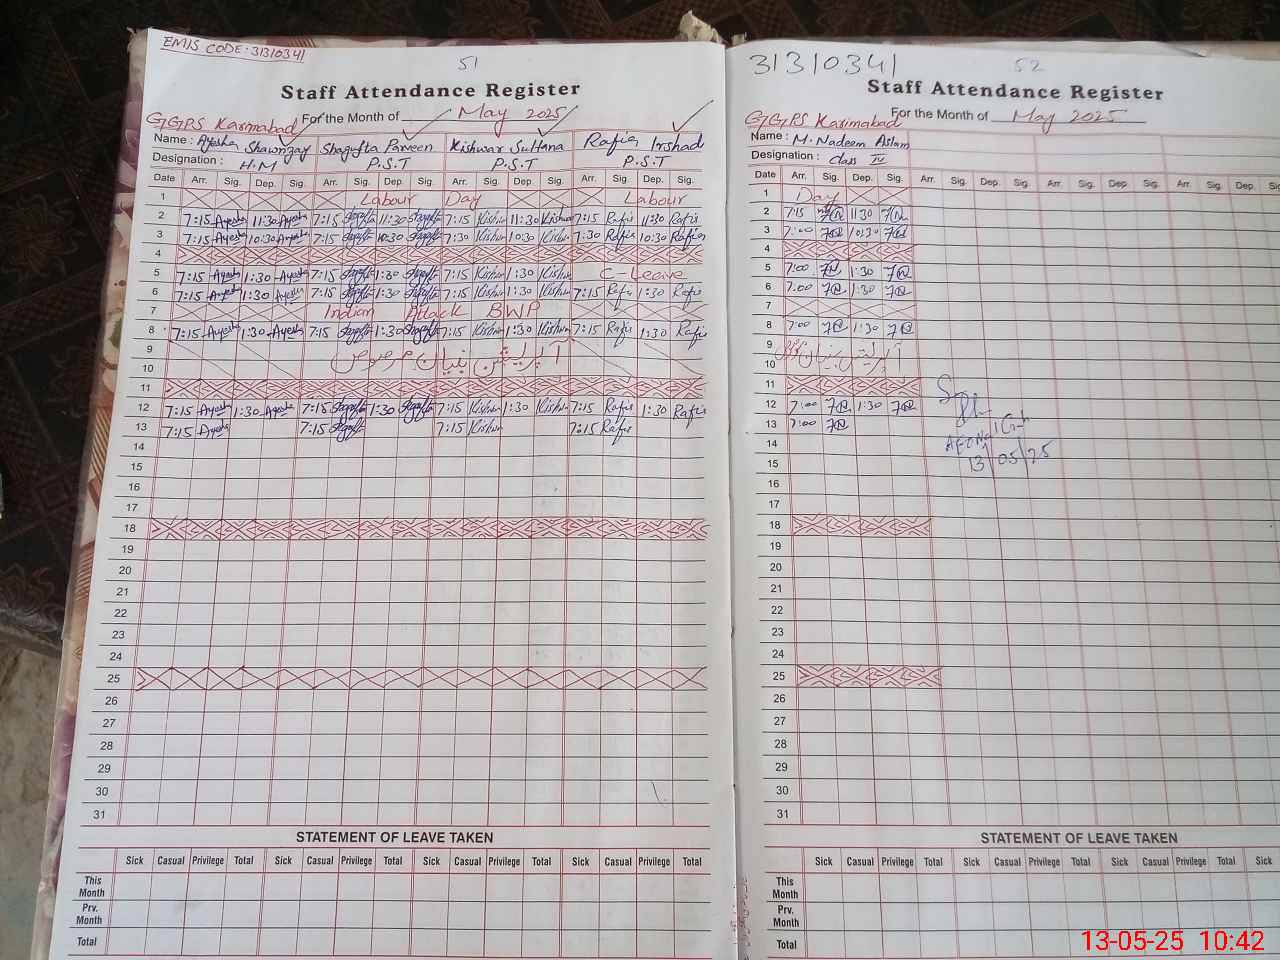 EMIS CODE: 31310341
51
Staff Attendance Register
GGPS Karmabad For the Month of May 2025
Name: Ayesha Shawnzay Shagufta Parveen Kishwar Sultana Rafia Irshad
Designation: H.M P.S.T P.S.T P.S.T
Date Arr. Sig. Dep. Sig. Arr. Sig. Dep. Sig. Arr. Sig. Dep. Sig. Arr. Sig. Dep. Sig.
1 Labour Day Labour
2 7:15 Ayesha 11:30 Ayesha 7:15 11:30 7:15 Kishwar 11:30 Kishwar 7:15 Rafia 11:30 Rafia
3 7:15 Ayesha 10:30 Ayesha 7:15 10:30 7:30 Kishwar 10:30 Kishwar 7:30 Rafia 10:30 Rafia
4
5 7:15 Ayesha 1:30 Ayesha 7:15 1:30 7:15 Kishwar 1:30 Kishwar C-Leave
6 7:15 Ayesha 1:30 Ayesha 7:15 1:30 7:15 Kishwar 1:30 Kishwar 7:15 Rafia 1:30 Rafia
7 Indian Attack BWP
8 7:15 Ayesha 1:30 Ayesha 7:15 1:30 7:15 Kishwar 1:30 Kishwar 7:15 Rafia 1:30 Rafia
9
10 آپریشن بنیان مرصوص
11
12 7:15 Ayesha 1:30 Ayesha 7:15 1:30 7:15 Kishwar 1:30 Kishwar 7:15 Rafia 1:30 Rafia
13 7:15 Ayesha 7:15 7:15 Kishwar 7:15 Rafia
14
15
16
17
18
19
20
21
22
23
24
25
26
27
28
29
30
31
STATEMENT OF LEAVE TAKEN
Sick Casual Privilege Total Sick Casual Privilege Total Sick Casual Privilege Total Sick Casual Privilege Total
This Month
Prv. Month
Total
31310341
52
Staff Attendance Register
GGPS Karimabad For the Month of May 2025
Name: M. Nadeem Aslam
Designation: Class IV
Date Arr. Sig. Dep. Sig. Arr. Sig. Dep. Sig. Arr. Sig. Dep. Sig. Arr. Sig. Dep. Sig.
1 Day
2 7:15 11:30
3 7:00 10:30
4
5 7:00 1:30
6 7:00 1:30
7
8 7:00 1:30
9 آپریشن بنیان مرصوص
10
11
12 7:00 1:30
13 7:00
14
15 13/05/25
16
17
18
19
20
21
22
23
24
25
26
27
28
29
30
31
STATEMENT OF LEAVE TAKEN
Sick Casual Privilege Total Sick Casual Privilege Total Sick Casual Privilege Total Sick
This Month
Prv. Month
Total
13-05-25 10:42